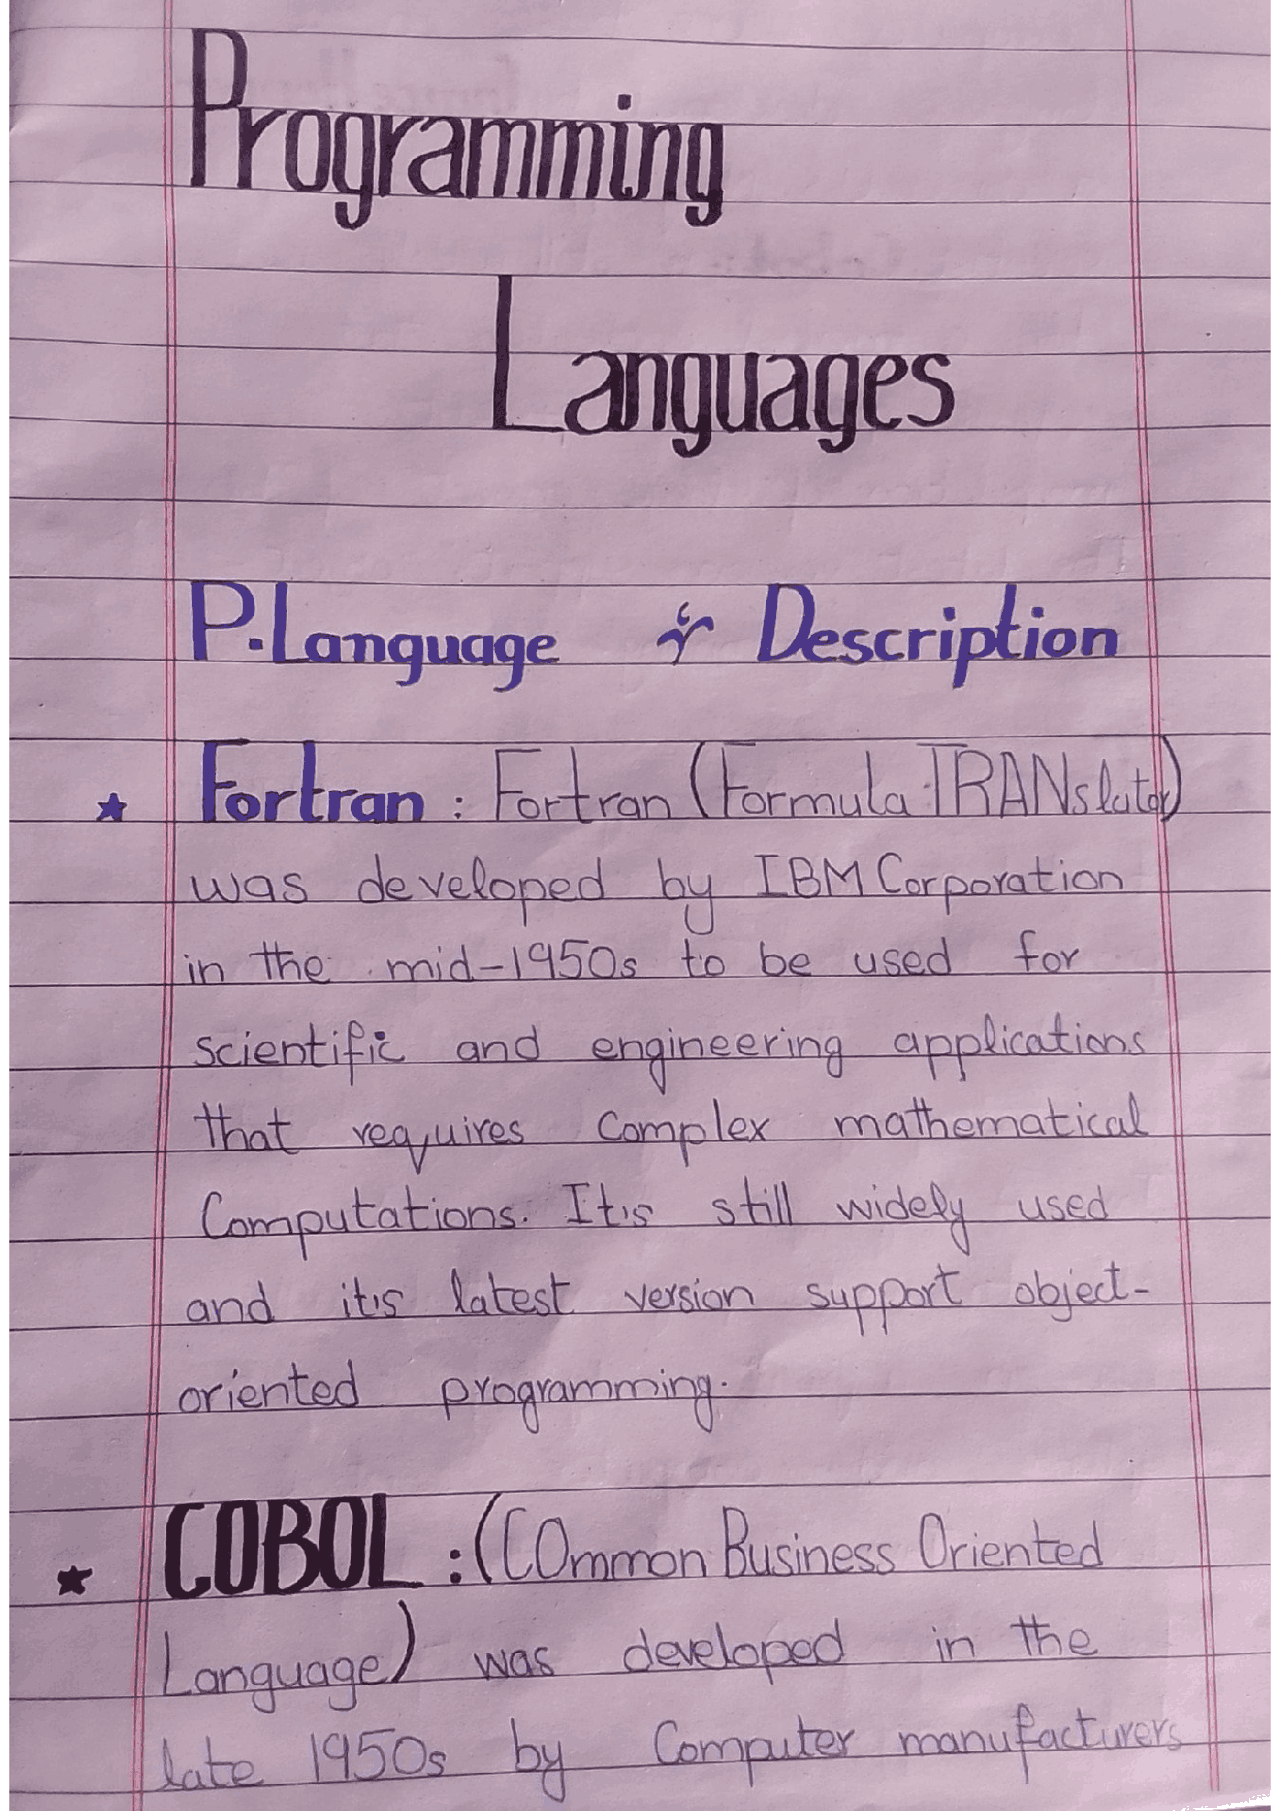 Programming
Languages
P.Language & Description
★ Fortran : Fortran (Formula TRANslator)
was developed by IBM Corporation
in the mid-1950s to be used for
scientific and engineering applications
that requires Complex mathematical
Computations. It's still widely used
and it's latest version support object-
oriented programming.
★ COBOL : (COmmon Business Oriented
Language) was developed in the
late 1950s by Computer manufacturers